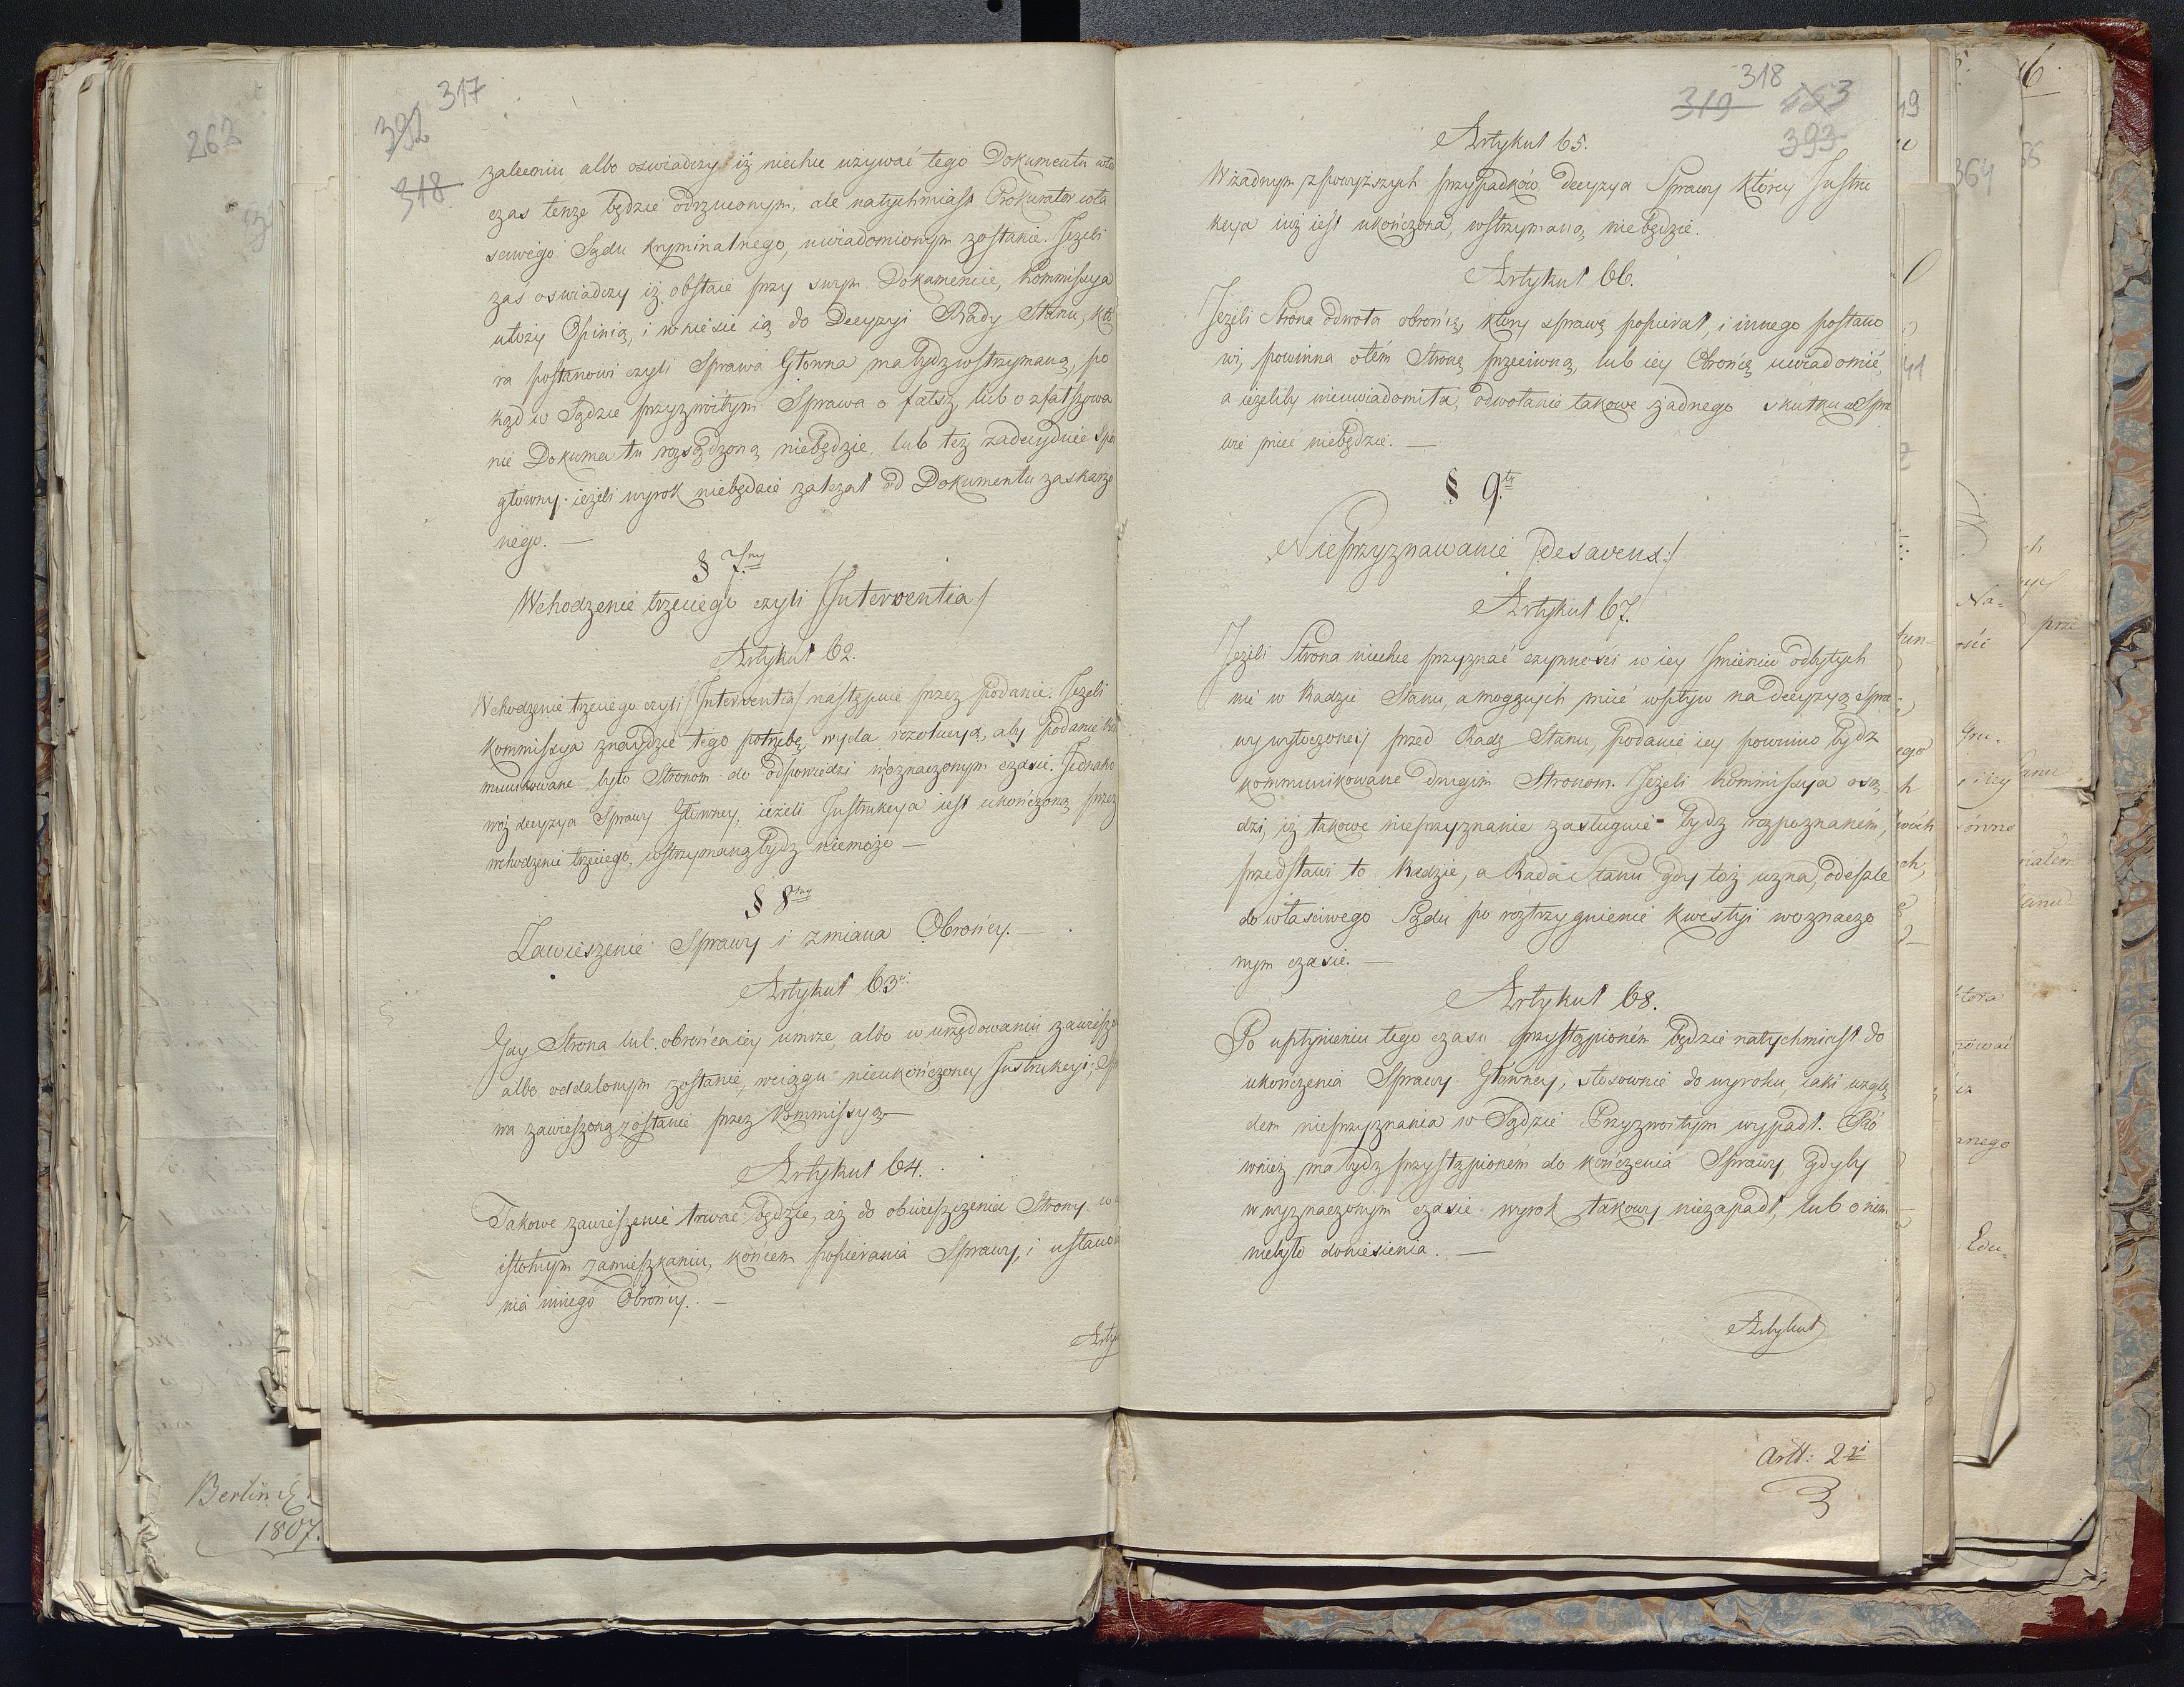 317
392
318
zaleceniu albo oswiadczy iż niechce używać tego Dokumentu wte
czas tenże będzie odrzuconym, ale natychmiast Prokurator wła
sciwego Sądu kryminalnego, uwiadomionym zostanie. Jeżeli
zas oswiadczy iż obstaie przy swym Dokumencie, Kommissya
ułoży Opinią, i wniesie ią do Decyzyi Rady Stanu, któ
ra postanowi czyli Sprawa Głowna ma bydz wstrzymaną, po
kąd w Sądzie przyzwoitym Sprawa o fałsz, lub o sfałszowa
nie Dokumentu rozsądzoną niebędzie, lub też zadecyduie Spór
głowny ieżeli wyrok niebędzie zależał od Dokumentu zaskarżo
nego. —
§ 7my
Wchodzenie trzeciego czyli /Interventia/
Artykuł 62.
Wchodzenie trzeciego czyli /Interventia/ następuie przez podanie. Jeżeli
Kommissya znaydzie tego potrzebę, wyda rezolucyą, aby podanie ko
mmunikowane było Stronom do odpowiedzi w oznaczonym czasie. Jednako
woż decyzya Sprawy Głowney, ieżeli Instrukcya iest ukończoną przez
wchodzenie trzeciego, wstrzymaną bydz niemoże —
§ 8my
Zawieszenie Sprawy i zmiana Obrońcy. —
Artykuł 63ci
Gdy Strona lub obrońca iey umrze, albo w urzędowaniu zawiesz
albo oddalonym zostanie, wciągu nieukończoney Instrukcyi; Sp
wa zawieszoną zostanie przez Kommissyą —
Artykuł 64.
Takowe zawieszenie trwać będzie, aż do obwieszczenia Strony w
istotnym zamieszkaniu, końcem popierania Sprawy, i ustano
nia innego Obrońcy. —
Arty
318
319
393
Artykuł 65.
W żadnym z powyższych przypadków, decyzya Sprawy którey Instru
kcya iuż iest ukończona, wstrzymaną niebędzie.
Artykuł 66.
Jeżeli Strona odwoła obrońcę, który sprawę popierał, i innego postano
wi, powinna otém Stronę przeciwną, lub iey Obrońcę uwiadomić,
a ieżeliby nieuwiadomiła, odwołanie takowe żadnego skutku w Spra
wie mieć niebędzie. —
§ 9ty
Nieprzyznawanie /:desaveux:/
Artykuł 67.
Jeżeli Strona niechce przyznać czynności w iey Imieniu odbytych
nie w Radzie Stanu, a mogących mieć wpływ na decyzyą Spra
wy wytoczoney przed Radę Stanu, podanie iey powinno bydz
kommunikowane drugim Stronom. Jeżeli Kommissya osą
dzi, iż takowe nieprzyznanie zasługuie bydz rozpoznaném,
przedstawi to Radzie, a Rada Stanu gdy toż uzna, odeszle
do właściwego Sądu po roztrzygnienie kwestyi w oznaczo
nym czasie. —
Artykuł 68.
Po upłynieniu tego czasu przystąpioném będzie natychmiast do
ukończenia Sprawy Głowney, stosownie do wyroku, iaki wzglę
dem nieprzyznania w Sądzie Przyzwoitym wypadł. Ró
wnież ma bydz przystąpioném do kończenia Sprawy, gdyby
w wyznaczonym czasie wyrok takowy niezapadł, lub o nim
niebyło doniesienia. —
Artykuł
Artt: 2gi
262
Berlin d.
1807.
364